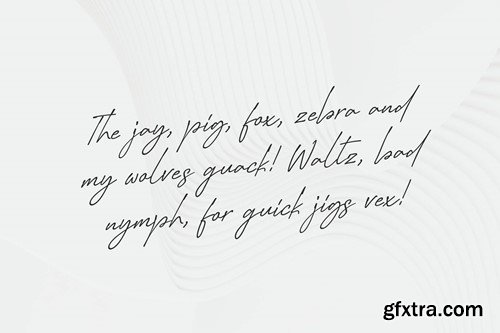 The jay, pig, fox, zebra and
my wolves quack! Waltz, bad
nymph, for quick jigs vex!
gfxtra.com